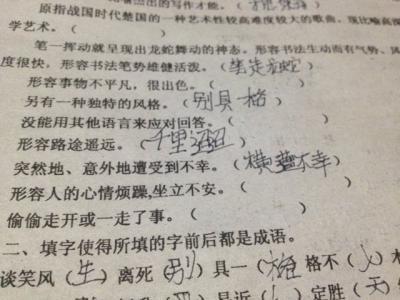 出的写作才能。（
原指战国时代楚国的一种艺术性较高难度较大的歌曲。现比喻高深
学艺术。（ ）
笔一挥动就呈现出龙蛇舞动的神态。形容书法生动而有气势、风
度很快，形容书法笔势雄健活泼。（笔走龙蛇）
形容事物不平凡，很出色。（ ）
另有一种独特的风格。（别具一格）
没能用其他语言来应对回答。（ ）
形容路途遥远。（千里迢迢）
突然地、意外地遭受到不幸。（横遭不幸）
形容人的心情烦躁,坐立不安。（ ）
偷偷走开或一走了事。（ ）
二、填字使得所填的字前后都是成语。
谈笑风（生）离死（别）具一（格）格不（入）木
定胜（天）